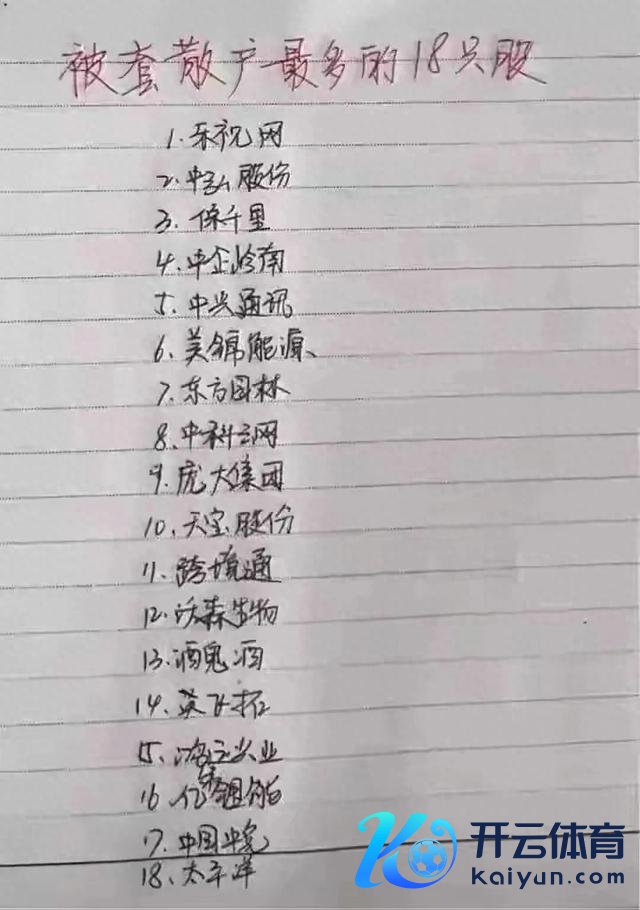 被套散户最多的18只股
1.乐视网
2.中弘股份
3.保千里
4.中企岭南
5.中兴通讯
6.美锦能源
7.东方园林
8.中科云网
9.庞大集团
10.天宝股份
11.跨境通
12.沃森生物
13.酒鬼酒
14.英飞拓
15.兴业
16.亿
17.中国平安
18.太平洋
开云体育
kaiyun.com